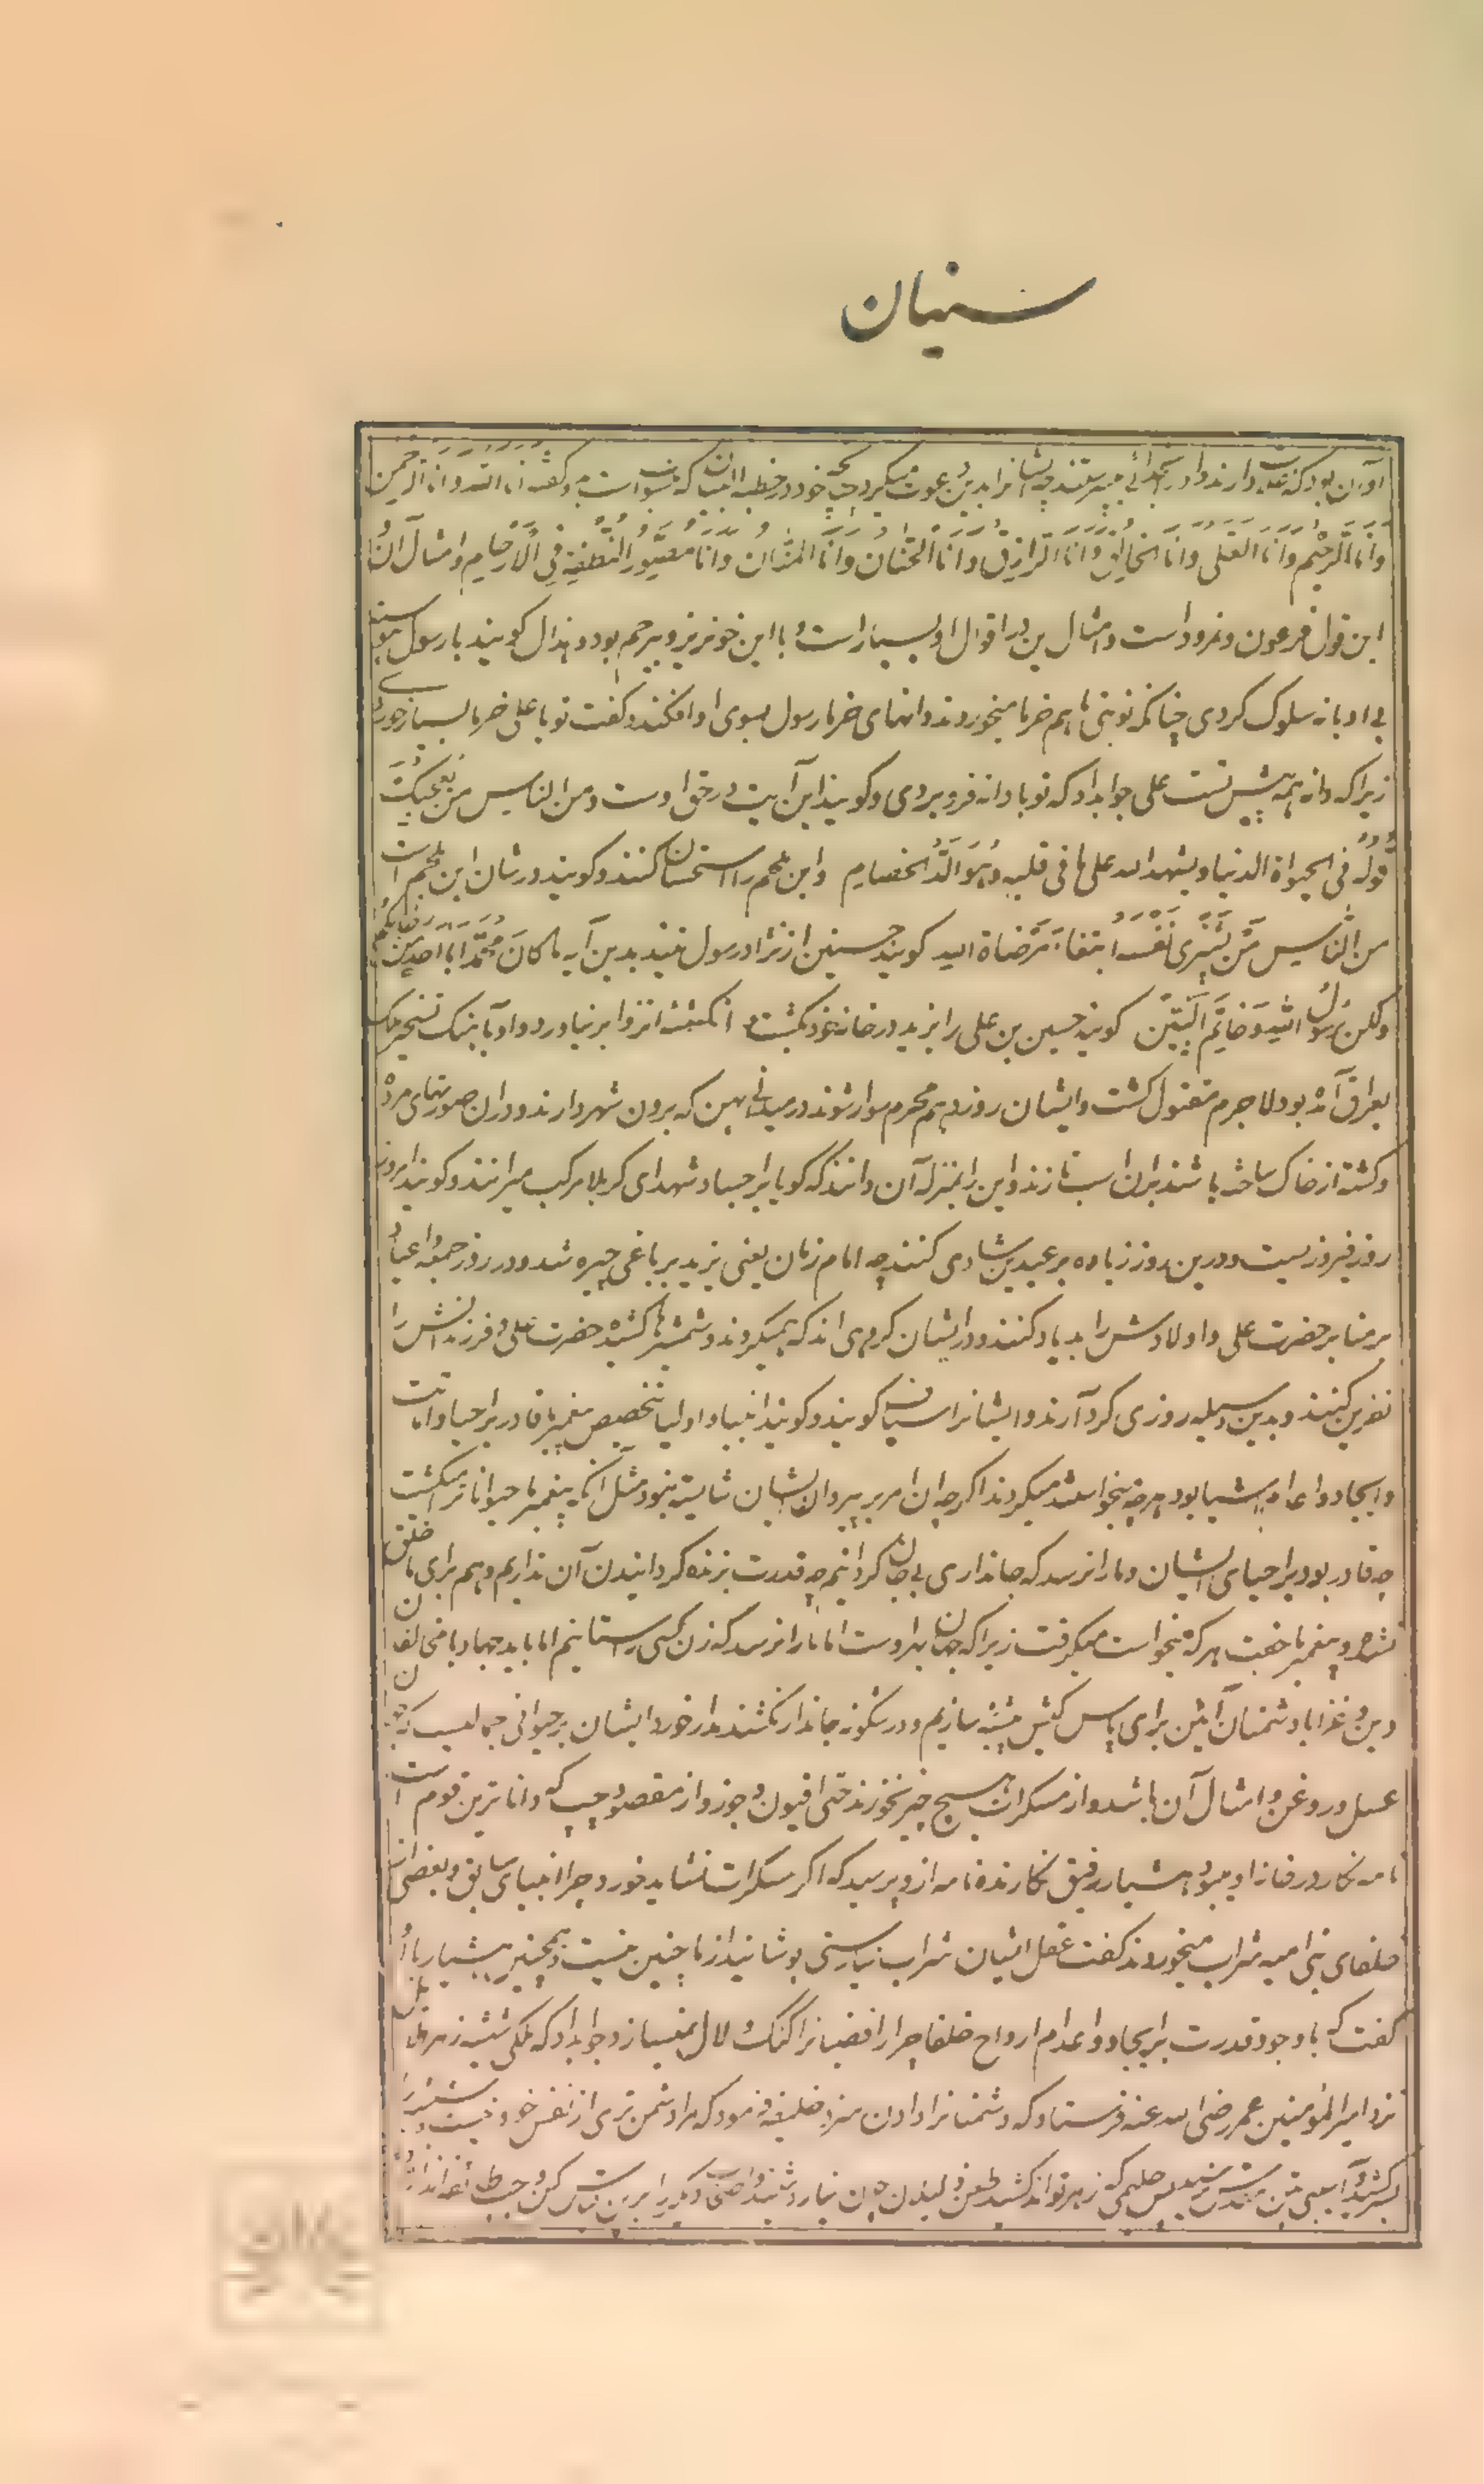 سنیان
او آن بود که دارند و او را بخدائی میپرستند چه ایشانرا بدین دعوت میکرد چنانچه خود در خطبه البیان که منسوبست بدو گفته انا الله و انا الرحمن
وَاَنَا الرَّحیْم وَاَنَا العَلی وَاَنَا الخَالِقُ وَاَنَا الرَّازِقُ وَاَنَا الْحَنَّانُ وَاَنَا المَنَّانُ وَاَنَا مُصَوِّرُ النُّطْفَةِ فِی الْاَرْحَامِ و امثال آن
این قول فرعون و نمرود است و امثال این در اقوال او بسیار است و با این خونریز و بیرحم بود و هزال گویند با رسول
بی ادبانه سلوک کردی چنانکه نوبتی باهم خرما میخوردند دانهای خرما رسول بسوی او افکند و گفت تو یا علی خرما بسیار خوردی
زیرا که دانه همه پیش تست علی جوابداد که تو با دانه فرو بردی و گویند این آیت در حق اوست و من الناس من یُعْجِبُکَ
قَولُهُ فی الحیواة الدنیا و یشهد الله علی ما فی قلبه وَهُوَ اَلَدُّ الخصام و ابن ملجم را استحسان کنند و گویند در شان ابن ملجم است
من النَّاس مَن یَشْرِی نَفْسَهُ ابتغاءَ مَرضاة الله گویند حسنین از نژاد رسول نیند بدین آیه ما کَانَ مُحَمَّد اَبَا اَحَدٍ مِن رجالکم
ولکن رَسُولُ اللهِ وَخَاتِمَ النَّبِیّن گویند حسین بن علی را یزید در خانه خود نکشت و انگشت انزوا بر نیاورد و او بآهنگ تسخیر ملک
بعراق آمده بود لاجرم مقتول گشت و ایشان روز دهم محرم سوار شوند در میدانی پهن که برون شهر دارند و در آن صورتهای مرده
و کشته از خاک ساخته باشند بران اسب تازند و این را بمنزله آن دانند که گویا بر اجساد شهدای کربلا مرکب میرانند و گویند امروز
روز فیروزیست و درین روز زیاده بر عیدین شادی کنند چه امام زمان یعنی یزید بر باغی چیره شد و در روز جمعه و اعیاد
بر منابر حضرت علی و اولادش را بد یاد کنند و در ایشان گروهی اند که میگردند و شمشیرها کشیده حضرت علی و فرزندانش را
نفرین کنند و بدین وسیله روزی گرد آرند و ایشانرا گویند و گویند انبیا و اولیا بتخصیص پیغمبر ما قادر بر احیا و امانت
و ایجاد و اعدام اشیا بود هرچه میخواستند میکردند اگرچه آن امر بر پیروان ایشان شایسته نبود مثل آنکه پیغمبر ما حیوانات را میکشت
چه قادر بود بر احیای ایشان و ما را نرسد که جانداری بی جان گردانیم چه قدرت بر زنده گردانیدن آن نداریم و هم برای ما خلق
نشده و پیغمبر ما جفت هر که میخواست میگرفت زیرا که جهان برای اوست اما ما را نرسد که زن کسی را ستانیم اما باید جهاد با مخالفان
دین و غزا با دشمنان آئین برای پاس کیش پیشه سازیم و درینگونه جاندار نکشند مدار خور ایشان بر حیوانی
عسل و روغن و امثال آن باشد و از مسکرات هیچ چیز نخورند حتی افیون و جوز و از مقصود چیپ که دانا ترین قوم است
نامه نگار در خانه او میبود هشیار رفیق نگارنده نامه ازو پرسید که اگر مسکرات نشاید خورد چرا انبیای سابق و بعضی از
خلفای بنی امیه شراب میخوردند گفت عقل ایشان شراب نیارستی پوشانید از ما چنین نیست و همچنین هشیار با او
گفت که با وجود قدرت بر ایجاد و اعدام ارواح خلفا چرا رافضیانرا گنگ و لال نمیسازد جوابداد که ملکی شیشه زهر
نزد امیر المؤمنین عمر رضی الله عنه فرستاد که دشمنانرا دادن سزد خلیفه فرمود که مرا دشمن تری از نفس خود نیست